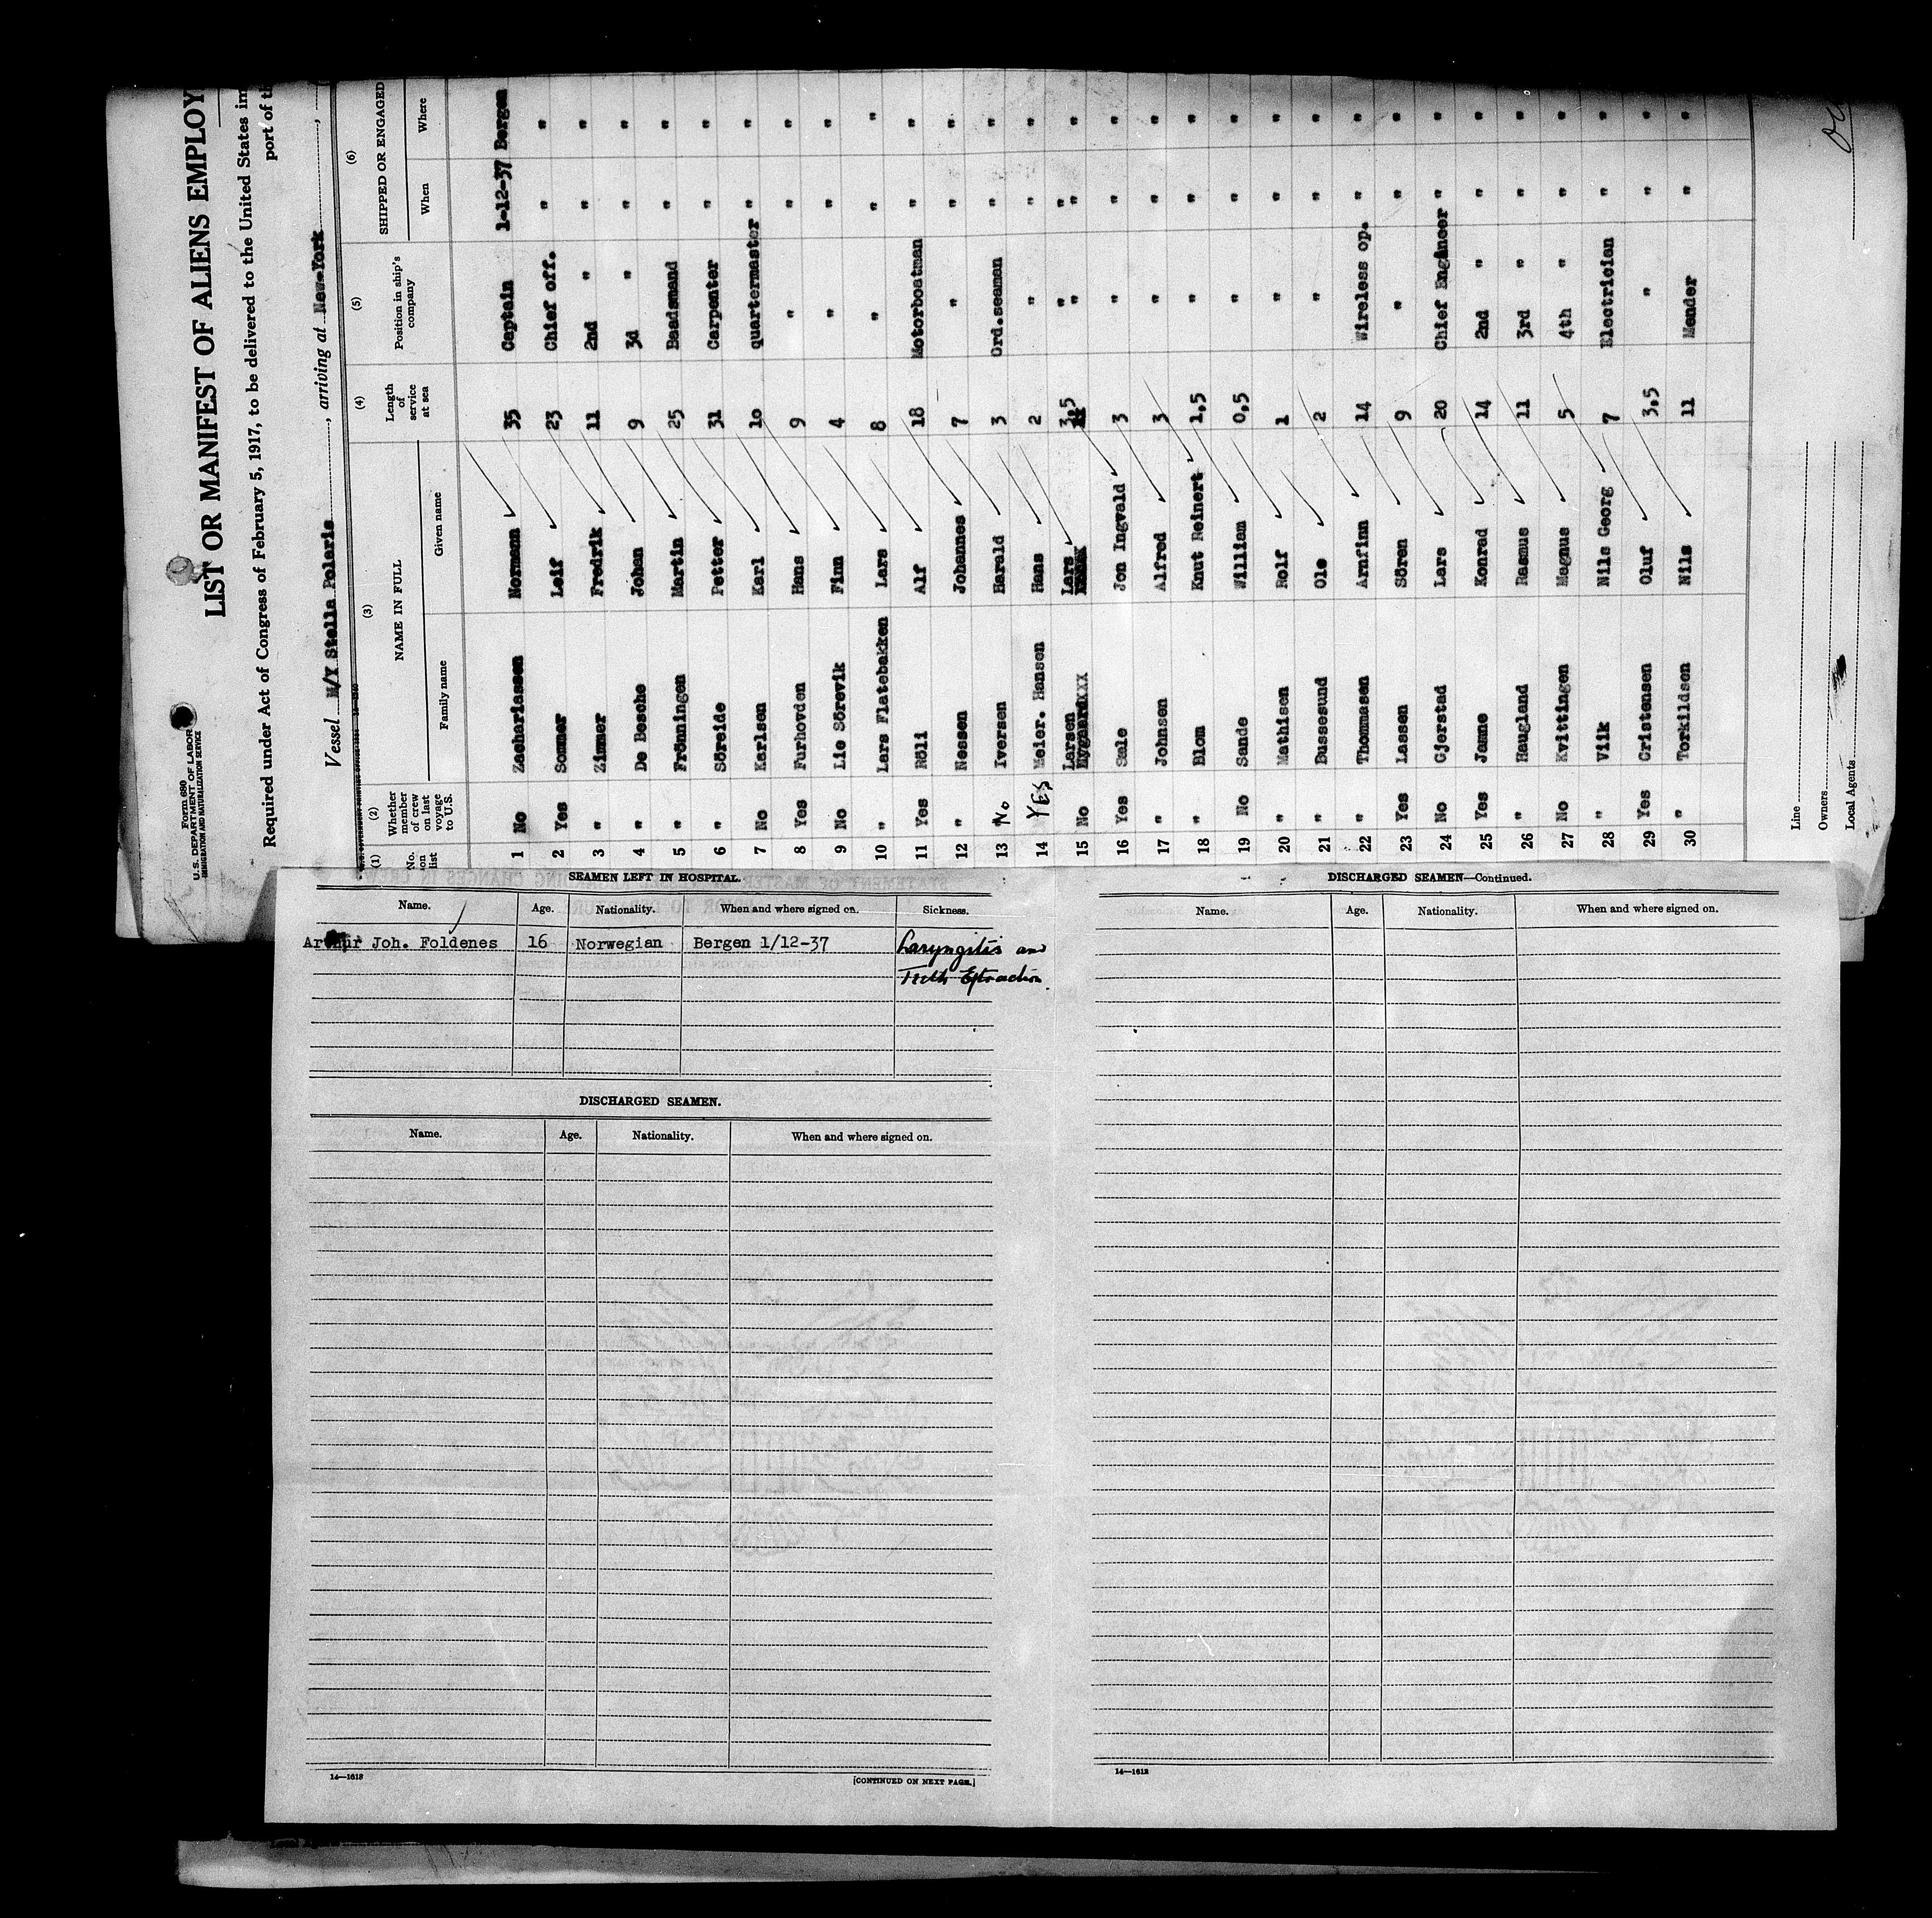 Form 680
U. S. DEPARTMENT OF LABOR
IMMIGRATION AND NATURALIZATION SERVICE
LIST OR MANIFEST OF ALIENS EMPLOY
Required under Act of Congress of February 5, 1917, to be delivered to the United States im
port of th
Vessel M/Y Stella Polaris, arriving at New-York,
(1) (2) (3) (4) (5) (6)
No. on list
Whether member of crew on last voyage to U.S.
NAME IN FULL
Family name Given name
Length of service at sea
Position in ship's company
SHIPPED OR ENGAGED
When Where
1 No Zachariassen Normann 35 Captain 1-12-37 Bergen
2 Yes Sommer Leif 23 Chief off. " "
3 " Zimmer Fredrik 11 2nd " " "
4 " De Besche Johan 9 3d " " "
5 " Frönningen Martin 25 Baadsmand " "
6 " Söreide Petter 31 Carpenter " "
7 No Karlsen Karl 10 quartermaster " "
8 Yes Furhovden Hans 9 " " "
9 No Lie Sörevik Finn 4 " " "
10 " Lars Flatebakken Lars 8 " " "
11 Yes Röli Alf 18 Motorboatman " "
12 " Nessen Johannes 7 " " "
13 No Iversen Harald 3 Ord.seaman " "
14 YES Meier. Hansen Hans 2 " " "
15 No Larsen Lars 3,5 " " "
16 Yes Sale Jon Ingvald 3 " " "
17 " Johnsen Alfred 3 " " "
18 " Blom Knut Reinert 1,5 " " "
19 No Sande William 0,5 " " "
20 " Mathisen Rolf 1 " " "
21 " Bussesund Ole 2 " " "
22 " Thommasen Arnfinn 14 Wireless op. " "
23 Yes Lassen Sören 9 " " "
24 No Gjerstad Lars 20 Chief Engineer " "
25 Yes Jamne Konrad 14 2nd " " "
26 " Haugland Rasmus 11 3rd " " "
27 No Kvittingen Magnus 5 4th " " "
28 " Vilk Nils Georg 7 Electrician " "
29 Yes Cristensen Oluf 3,5 " " "
30 " Torkildsen Nils 11 Mender " "
Line
Owners
Local Agents
SEAMEN LEFT IN HOSPITAL.
Name. Age. Nationality. When and where signed on. Sickness.
Arthur Joh. Foldenes 16 Norwegian Bergen 1/12-37 Laryngitis and
Teeth Extraction.
DISCHARGED SEAMEN.
Name. Age. Nationality. When and where signed on.
14—1613 [CONTINUED ON NEXT PAGE.]
DISCHARGED SEAMEN—Continued.
Name. Age. Nationality. When and where signed on.
14—1613